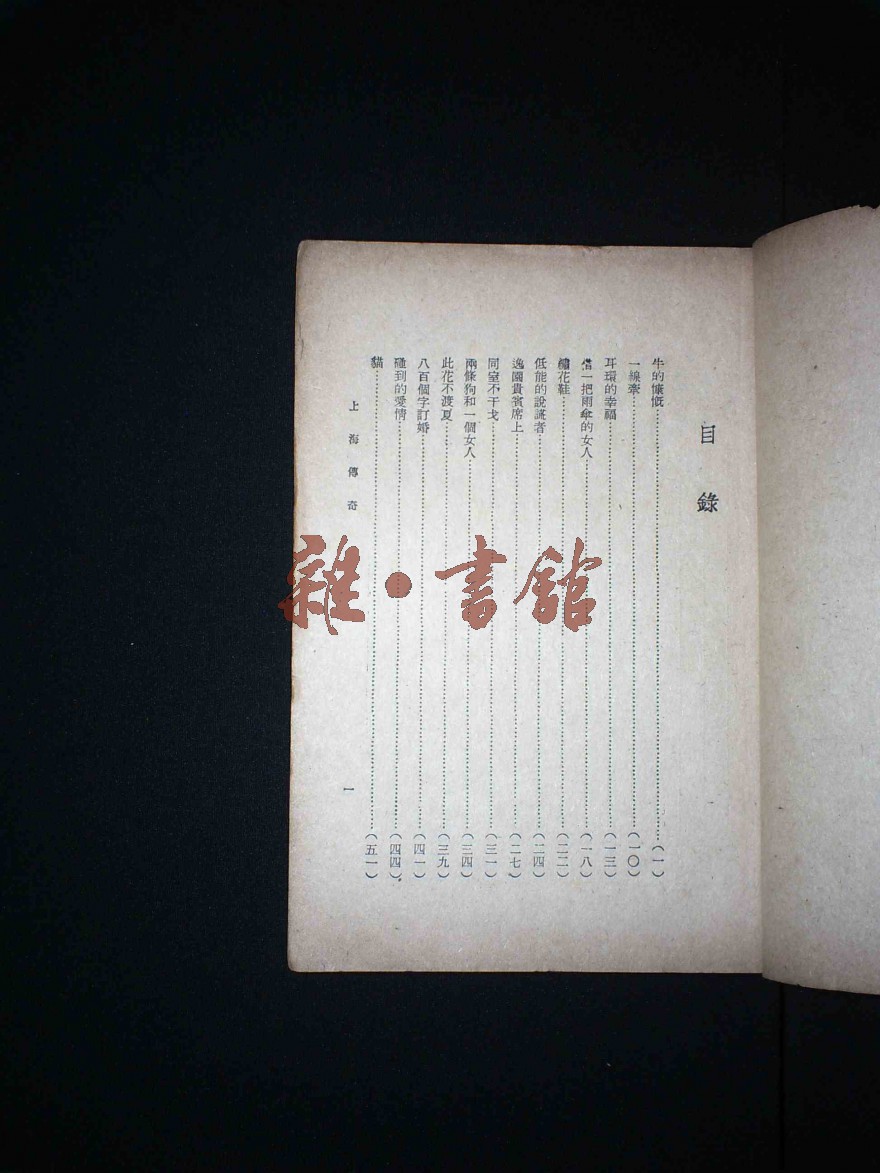 目錄
牛的慷慨…………(一)
一線牽…………(一〇)
耳環的幸福…………(一三)
借一把雨傘的女人…………(一八)
繡花鞋…………(二二)
低能的說謊者…………(二四)
逸園貴賓席上…………(二七)
同室不干戈…………(三一)
兩條狗和一個女人…………(三四)
此花不渡夏…………(三九)
八百個字訂婚…………(四一)
碰到的愛情…………(四四)
貓…………(五一)
上海傳奇
一
雜·書館